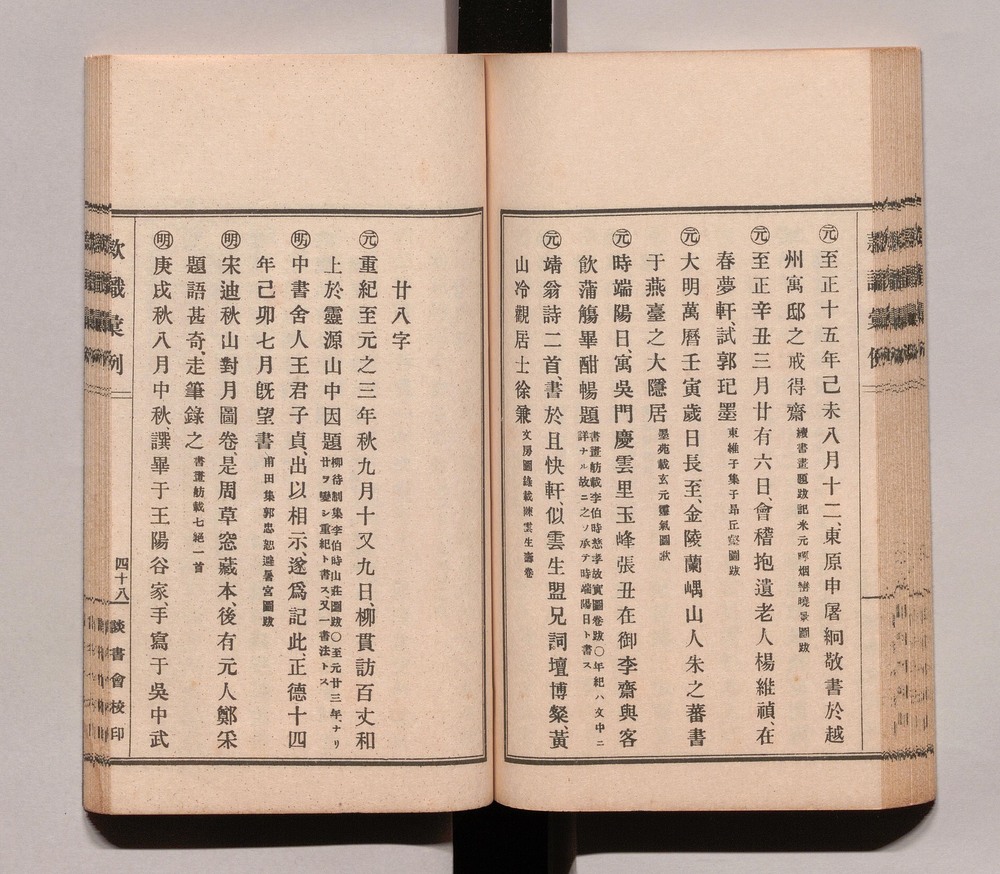 ㊎元至正十五年己未八月十二、東原申屠絅敬書於越
州寓邸之戒得齋 續書畫題跋記米元暉烟巒曉景圖跋
元至正辛丑三月廿有六日、會稽抱遺老人楊維禎、在
春夢軒、試郭玘墨 東維子集子昂丘壑圖跋
元大明萬曆壬寅歲日長至、金陵蘭嵎山人朱之蕃書
于燕臺之大隱居 墨苑載玄元靈氣圖
元時端陽日、寓吳門慶雲里玉峰張丑在御李齋與客
飲蒲觴畢酣暢題 書畫舫載李伯時慈孝故實圖卷跋〇年紀ハ文中ニ
詳ナル故ニ之ソ承テ時端陽日ト書ス
元靖翁詩二首、書於且快軒、似雲生盟兄詞壇博粲黃
山冷觀居士徐兼 文房圖錄載陳雲生壽卷
廿八字
元重紀至元之三年秋九月十又九日、柳貫訪百丈和
上於靈源山中因題 柳待制集李伯時山莊圖跋〇至元廿三年ナリ
廿ヲ變シ重紀ト書ス、又一書法トス
明中書舍人王君子貞、出以相示、遂爲記此、正德十四
年己卯七月旣望書 甫田集郭忠恕避暑宮圖跋
明宋迪秋山對月圖卷、是周草窓藏本、後有元人鄭采
題語甚奇、走筆錄之 書畫舫載七絕一首
明庚戌秋八月中秋、譔畢于王陽谷家、手寫于吳中武
款識彙例
四十八
談書會校印